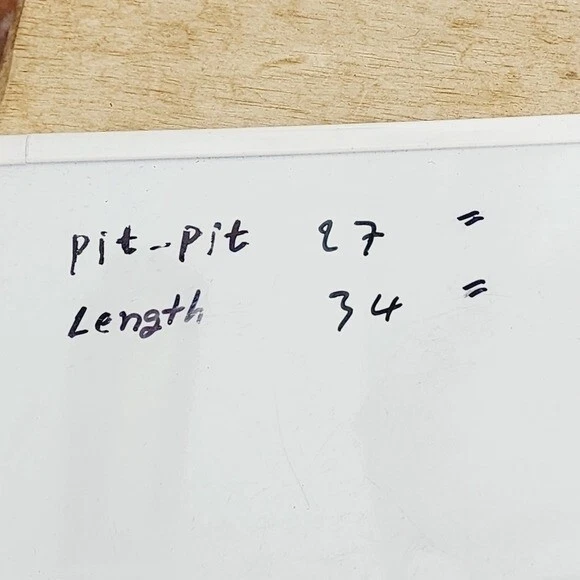 pit--pit 27 "
Length 34 "